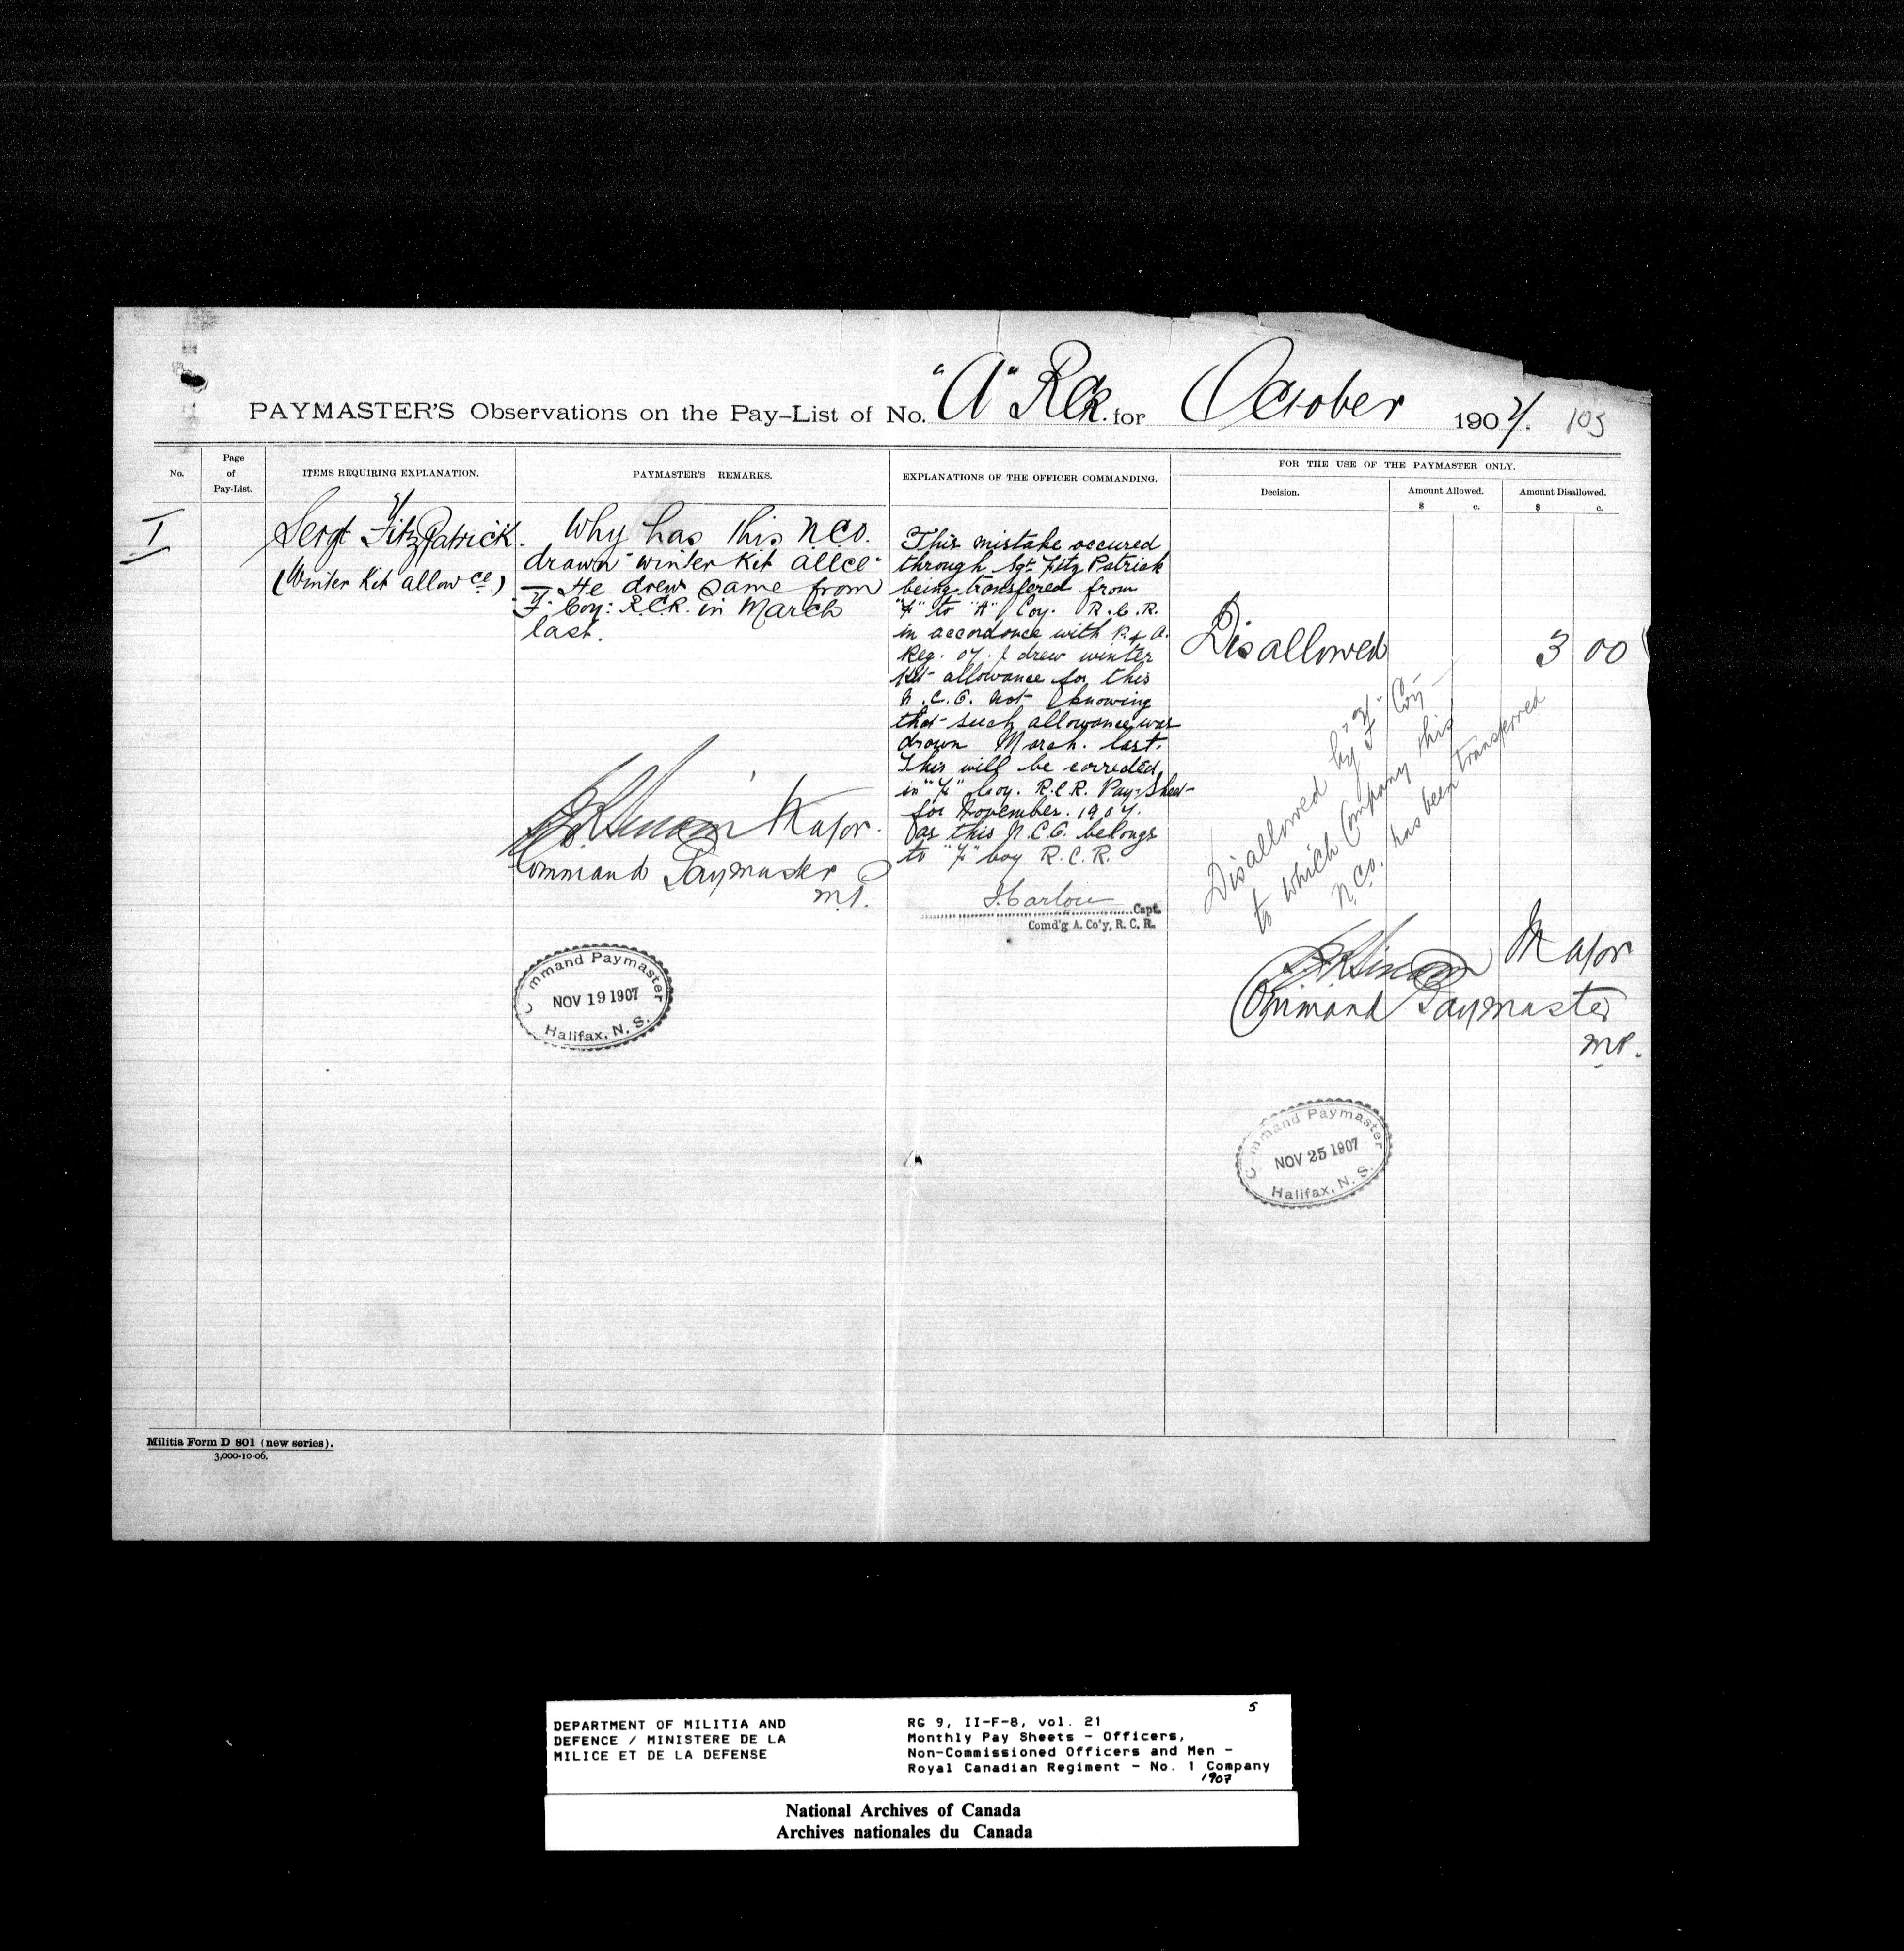 PAYMASTER'S Observations on the Pay-List of No. "A" RCR. for October 1907. 105
No.
Page of Pay-List.
ITEMS REQUIRING EXPLANATION.
PAYMASTER'S REMARKS.
EXPLANATIONS OF THE OFFICER COMMANDING.
FOR THE USE OF THE PAYMASTER ONLY.
Decision.
Amount Allowed.
$ c.
Amount Disallowed.
$ c.
I
Sergt FitzPatrick.
(Winter Kit allowce)
Why has this NCO.
drawn winter Kit allce
— He drew same from
"F" Coy: R.C.R. in March
last.
Major.
Command Paymaster
Command Paymaster
NOV 19 1907
Halifax, N. S.
This mistake occured
through Sgt Fitz Patrick
being transfered from
"F" to "A" Coy. R.C.R.
in accordance with P & A.
Reg. 07. I drew winter
kit allowance for this
N.C.O. not knowing
that such allowance was
drawn March. last.
This will be corrected
in "F" Coy. R.C.R. Pay-Sheet
for November. 1907.
as this N.C.O. belongs
to "F" Coy R.C.R.
Capt.
Comd'g A. Co'y, R. C. R.
Disallowed 3 00
Disallowed by "F" Coy
to which Company this
N.CO. has been transferred
Major
Command Paymaster
Command Paymaster
NOV 25 1907
Halifax, N. S.
Militia Form D 801 (new series).
3,000-10-06.
5
DEPARTMENT OF MILITIA AND
DEFENCE / MINISTERE DE LA
MILICE ET DE LA DEFENSE
RG 9, II-F-8, vol. 21
Monthly Pay Sheets - Officers,
Non-Commissioned Officers and Men -
Royal Canadian Regiment - No. 1 Company
1907
National Archives of Canada
Archives nationales du Canada